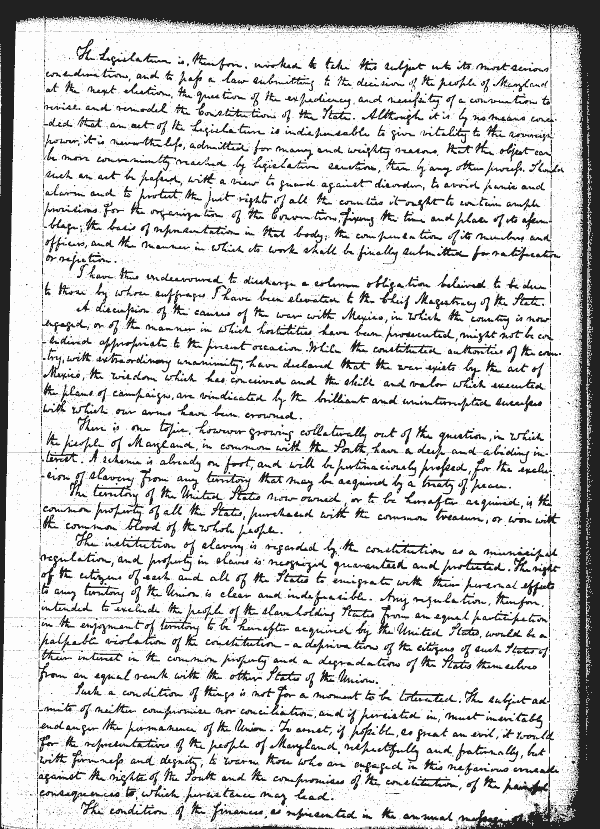 The Legislature is, therefore, invoked to take this subject into its most serious
consideration, and to pass a law submitting to the decision of the people of Maryland
at the next election, the question of the expediency and necessity of a convention to
revise and remodel the Constitution of the State. Although it is by no means conce-
-ded that an act of the Legislature is indispensable to give vitality to the sovereign
power, it is nevertheless, admitted for many and weighty reasons, that the object can
be more conveniently reached by legislative sanction, than by any other process. Should
such an act be passed, with a view to guard against disorder, to avoid panic and
alarm and to protect the just rights of all the counties it ought to contain ample
provisions for the organization of the Convention, fixing the time and place of its assem-
-blage; the basis of representation in that body; the compensation of its members and
officers, and the manner in which its work shall be finally submitted for ratification
or rejection.
I have thus endeavoured to discharge a solemn obligation believed to be due
to those by whose suffrages I have been elevated to the Chief Magistracy of the State.
A discussion of the causes of the war with Mexico, in which the country is now
engaged, or of the manner in which hostilities have been prosecuted, might not be con-
-sidered appropriate to the present occasion. While the constituted authorities of the coun-
-try, with extraordinary unanimity, have declared that the war exists by the act of
Mexico, the wisdom which has conceived and the skill and valor which executed
the plans of campaign, are vindicated by the brilliant and uninterrupted successes
with which our arms have been crowned.
There is one topic, however growing collaterally out of the question, in which
the people of Maryland, in common with the South, have a deep and abiding in-
-terest. A scheme is already on foot, and will be pertinaciously pressed, for the exclu-
-sion of slavery from any territory that may be acquired by a treaty of peace.
The territory of the United States now owned, or to be hereafter acquired, is the
common property of all the States, purchased with the common treasure, or won with
the common blood of the whole people.
The institution of slavery is regarded by the constitution as a municipal
regulation, and property in slaves is recognized guaranteed and protected. The right
of the citizens of each and all of the States to emigrate with their personal effects
to any territory of the Union is clear and indefeasible. Any regulation, therefore,
intended to exclude the people of the slaveholding States from an equal participation
in the enjoyment of territory to be hereafter acquired by the United States, would be a
palpable violation of the constitution - a deprivation of the citizens of such States of
their interest in the common property and a degradation of the States themselves
from an equal rank with the other States of the Union.
Such a condition of things is not for a moment to be tolerated. The subject ad-
-mits of neither compromise nor conciliation, and if persisted in, must inevitably
endanger the permanence of the Union. To arrest, if possible, so great an evil, it would
for the representatives of the people of Maryland, respectfully and fraternally, but
with firmness and dignity, to warn those who are engaged in this nefarious crusade
against the rights of the South and the compromises of the constitution, of the painful
consequences to, which persistance may lead.
The condition of the finances, as represented in the annual message of